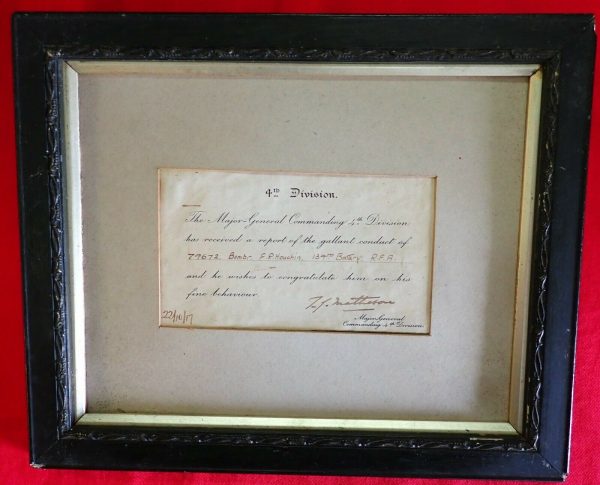 4TH Division.
The Major-General Commanding 4th Division
has received a report of the gallant conduct of
79672 Bombr. F.P. Houchin, 134TH Battery R.F.A.
and he wishes to congratulate him on his
fine behaviour.
T.G. Matheson
Major General
Commanding 4th Division.
22/10/17